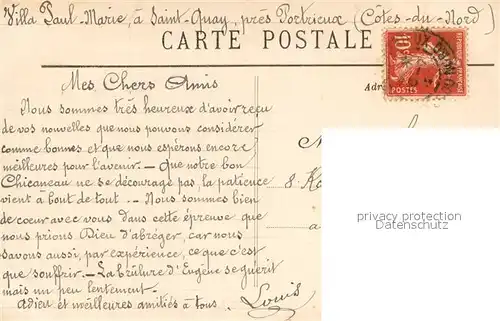 Villa Paul-Marie, à Saint-Quay, près Portrieux (Côtes-du-Nord)
CARTE POSTALE
Mes Chers Amis
Nous sommes très heureux d'avoir reçu
de vos nouvelles que nous pouvons considérer
comme bonnes et que nous espérons encore
meilleures pour l'avenir. — Que notre bon
Chicaneau ne se décourage pas, la patience
vient à bout de tout. — Nous sommes bien
de coeur avec vous dans cette épreuve que
nous prions Dieu d'abréger, car nous
savons aussi, par expérience, ce que c'est
que souffrir. — La brûlure d'Eugène se guérit
mais un peu lentement.
Adieu et meilleures amitiés à tous.
Louis
10
privacy protection
8